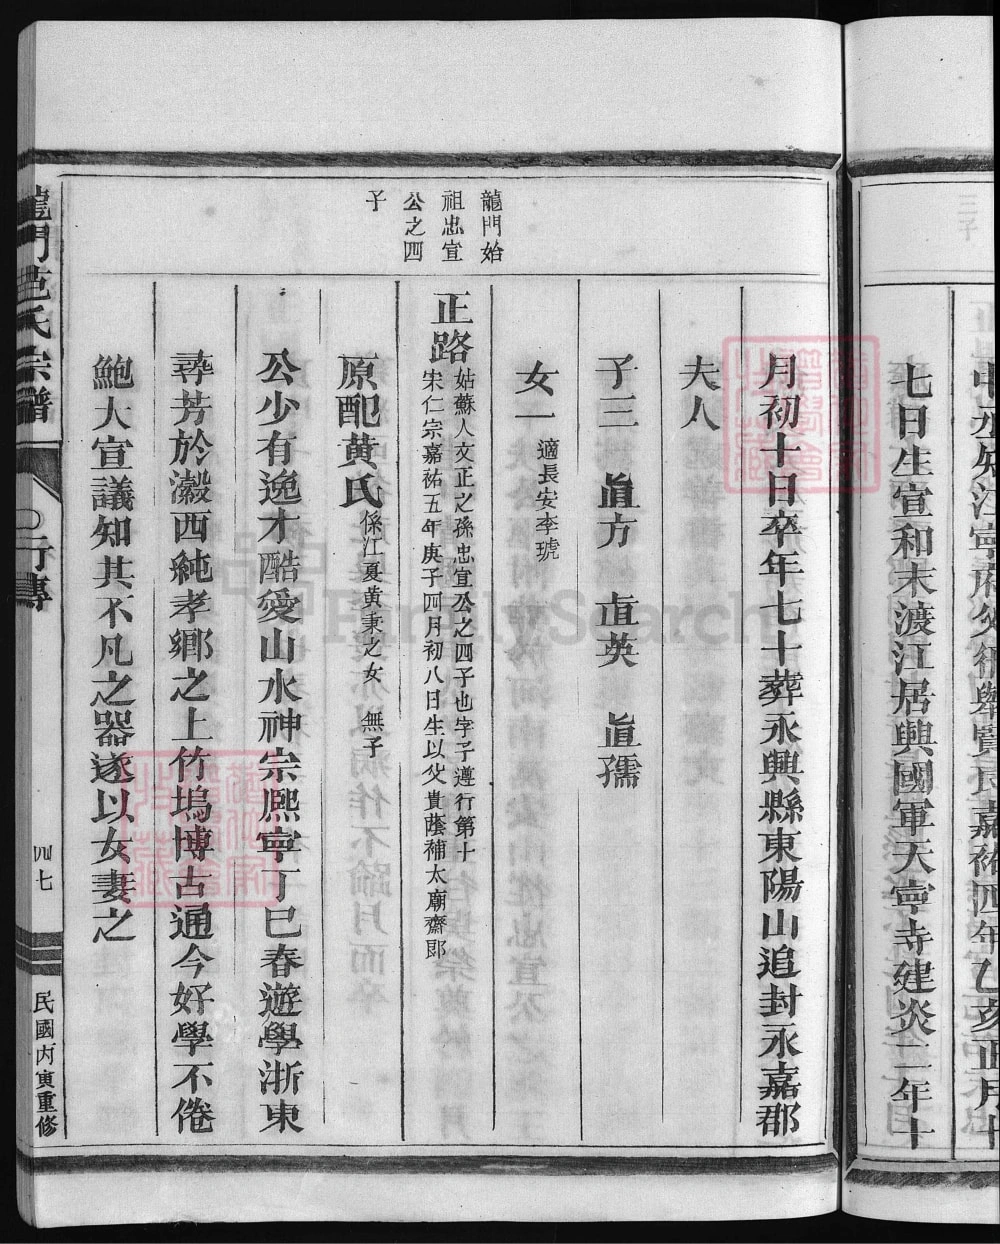 七日生宣和末渡江居興國軍天寧寺建炎二年十
月初十日卒年七十葬永興縣東陽山追封永嘉郡
夫人
子三 直方 直英 直孺
女一 適長安李琥
龍門始
祖忠宣
公之四
子
正路 姑蘇人文正之孫忠宣公之四子也字子遵行第十
宋仁宗嘉祐五年庚子四月初八日生以父貴蔭補太廟齋郎
原配黄氏 係江夏黄秉之女 無子
公少有逸才酷愛山水神宗熙寧丁巳春遊學浙東
尋芳於瀫西純孝鄉之上竹塢博古通今好學不倦
鮑大宣議知其不凡之器遂以女妻之
龍門范氏宗譜
行傳
四七
民國丙寅重修
FamilySearch